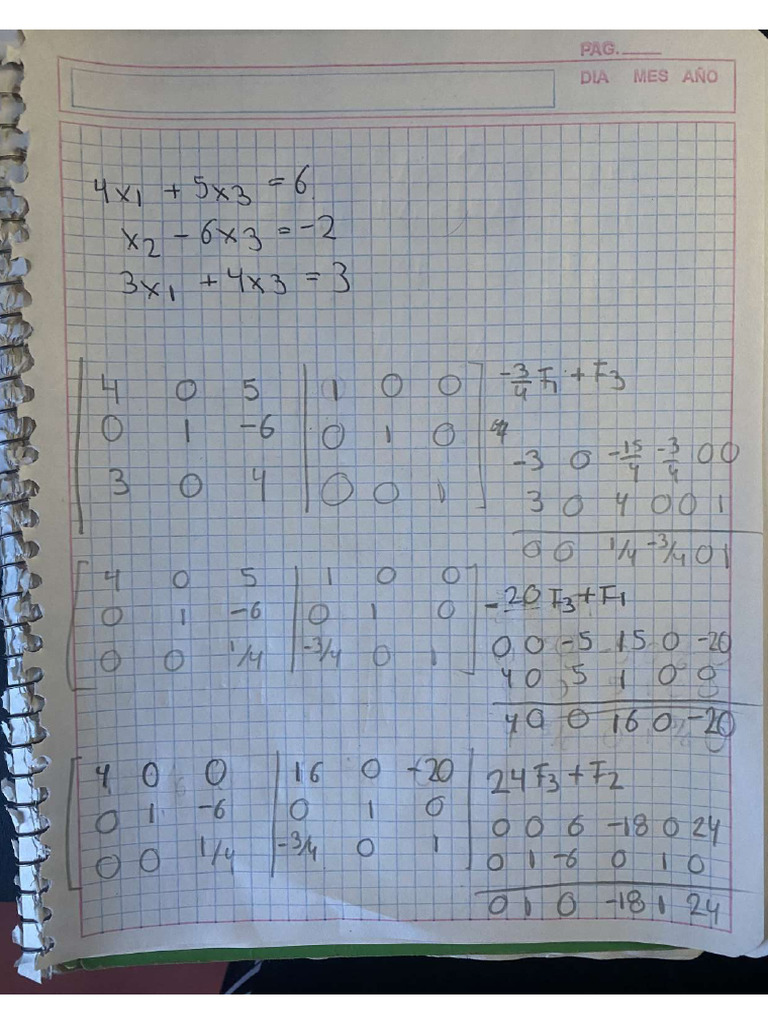 PAG.
DIA MES AÑO
4x₁ + 5x₃ = 6
x₂ - 6x₃ = -2
3x₁ + 4x₃ = 3
4 0 5 | 1 0 0
0 1 -6 | 0 1 0
3 0 4 | 0 0 1
-3/4 F₁ + F₃
-3 0 -15/4 -3/4 0 0
3 0 4 0 0 1
0 0 1/4 -3/4 0 1
4 0 5 | 1 0 0
0 1 -6 | 0 1 0
0 0 1/4 | -3/4 0 1
-20F₃ + F₁
0 0 -5 15 0 -20
4 0 5 1 0 0
4 0 0 16 0 -20
4 0 0 | 16 0 -20
0 1 -6 | 0 1 0
0 0 1/4 | -3/4 0 1
24F₃ + F₂
0 0 6 -18 0 24
0 1 -6 0 1 0
0 1 0 -18 1 24